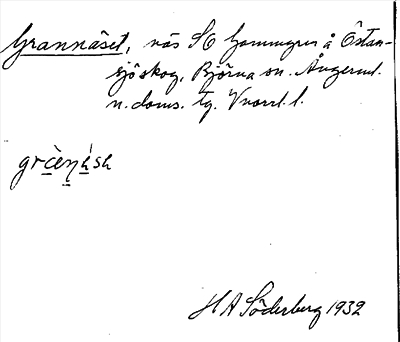 Grannäset, näs SO Gammgru å Östan-
sjöskog, Björna sn. Ångerml.
n. doms. tg. Vnorrl. l.
H A Söderberg 1932